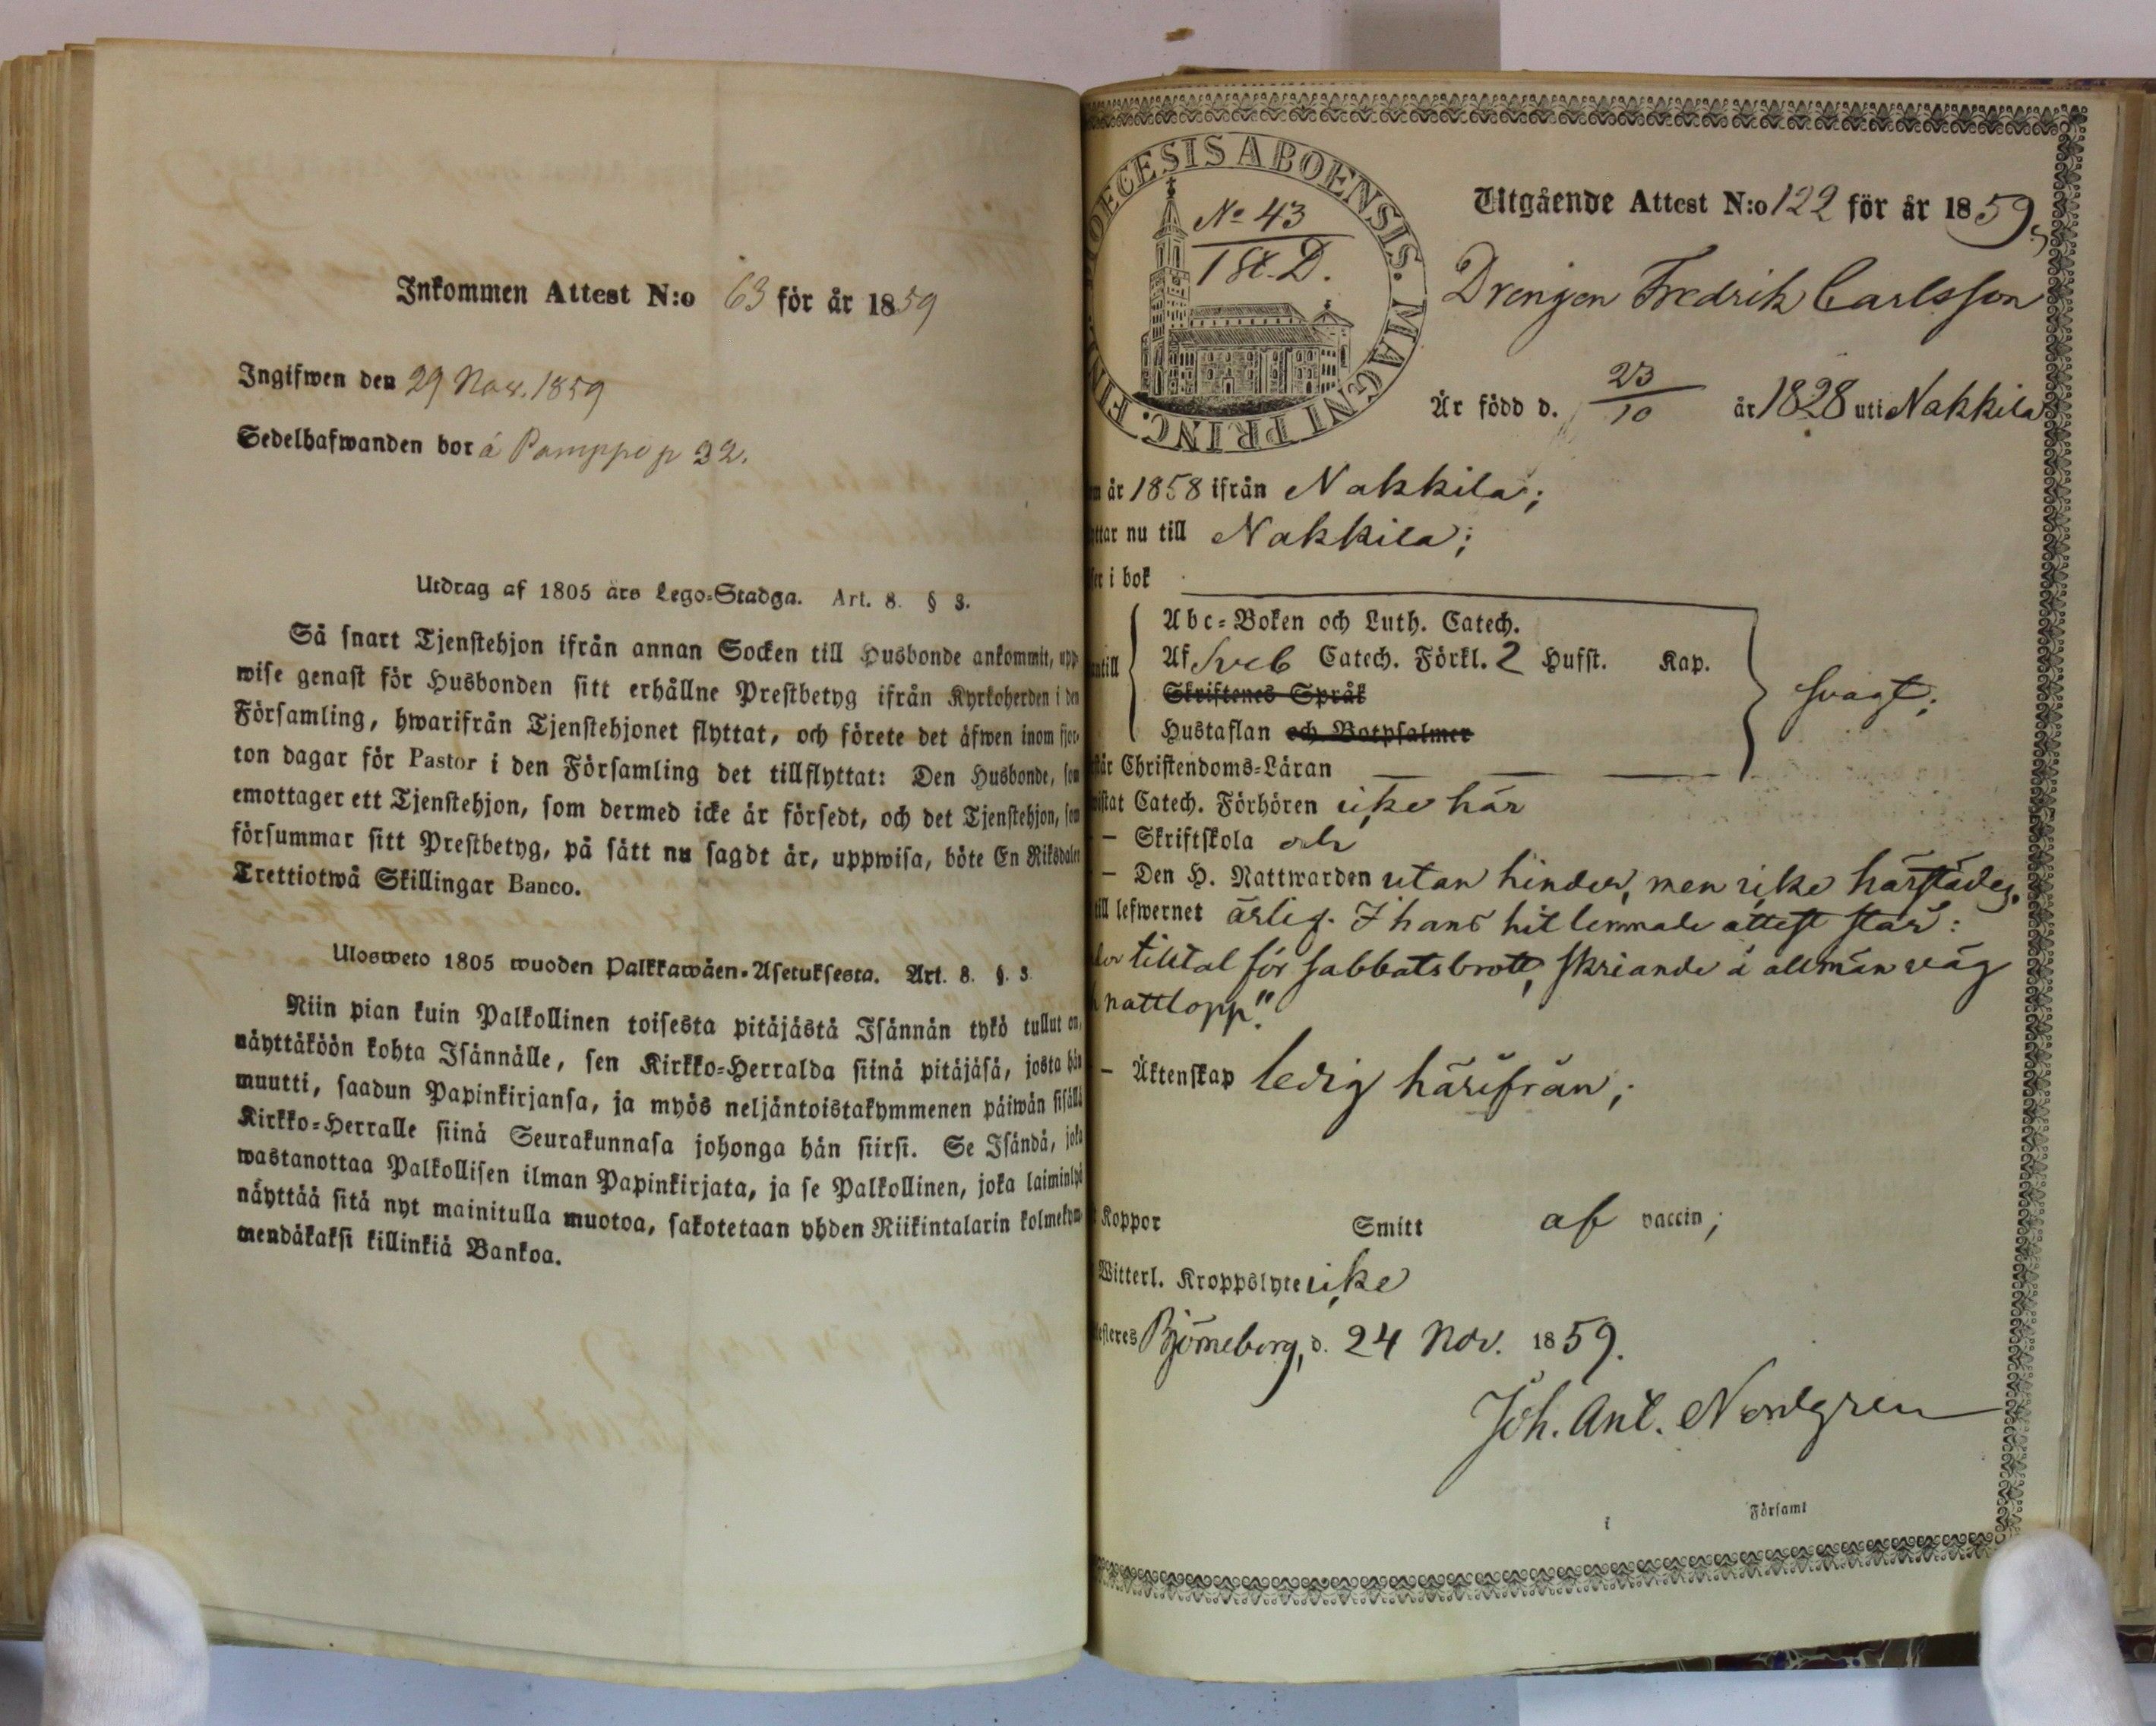 Inkommen Attest N:o 63 för år 1859
Ingifwen den 29 Nov. 1859
Sedelhafwanden bor å Pamppi p 32.
Utdrag af 1805 års Lego-Stadga. Art. 8. § 3.
Så snart Tjenstehjon ifrån annan Socken till Husbonde ankommit, upp
wise genast för Husbonden sitt erhållne Prestbetyg ifrån Kyrkoherden i den
Församling, hwarifrån Tjenstehjonet flyttat, och förete det äfwen inom fjor-
ton dagar för Pastor i den Församling det tillflyttat: Den Husbonde, som
emottager ett Tjenstehjon, som dermed icke är försedt, och det Tjenstehjon, som
försummar sitt Prestbetyg, på sätt nu sagdt är, uppwisa, böte En Riksdaler
Trettiotwå Skillingar Banco.
Ulosweto 1805 wuoden Palkkawäen-Asetuksesta. Art. 8. §. 3
Niin pian kuin Palkollinen toisesta pitäjästä Isännän tykö tullut on,
näyttäköön kohta Isännälle, sen Kirkko-Herralda siinä pitäjäsä, josta hän
muutti, saadun Papinkirjansa, ja myös neljäntoistakymmenen päiwän sisällä
Kirkko-Herralle siinä Seurakunnasa johonga hän siirsi. Se Isändä, joka
wastanottaa Palkollisen ilman Papinkirjata, ja se Palkollinen, joka laiminlyö
näyttää sitä nyt mainitulla muotoa, sakotetaan yhden Riikintalarin kolmekym-
mendäkaksi killinkiä Bankoa.
DIOECESIS ABOENSIS. MAGNI PRINC. FIN
No 43
1 St. D.
Utgående Attest N:o 122 för år 1859,
Drengen Fredrik Carlsson
Är född d. 23/10 år 1828 uti Nakkila
m år 1858 ifrån Nakkila;
ttar nu till Nakkila;
er i bok
ntill
Abc-Boken och Luth. Catech.
Af Sveb Catech. Förkl. 2 Hufst. Kap.
Skriftenes Språk
Hustaflan och Botpsalmer
svagt;
står Christendoms-Läran
wistat Catech. Förhören icke här
– Skriftskola och
– Den H. Nattwarden utan hinder, men icke härstädes.
till lefwernet ärlig. I hans hit lemnade attest står:
tilltal för sabbatsbrott, skriande å allmän väg
nattlopp."
– Äktenskap ledig härifrån;
Koppor Smitt af vaccin;
Witterl. Kroppslyte icke
testeres Björneborg, d. 24 Nov. 1859.
Joh. Ant. Nordgren
i Församl